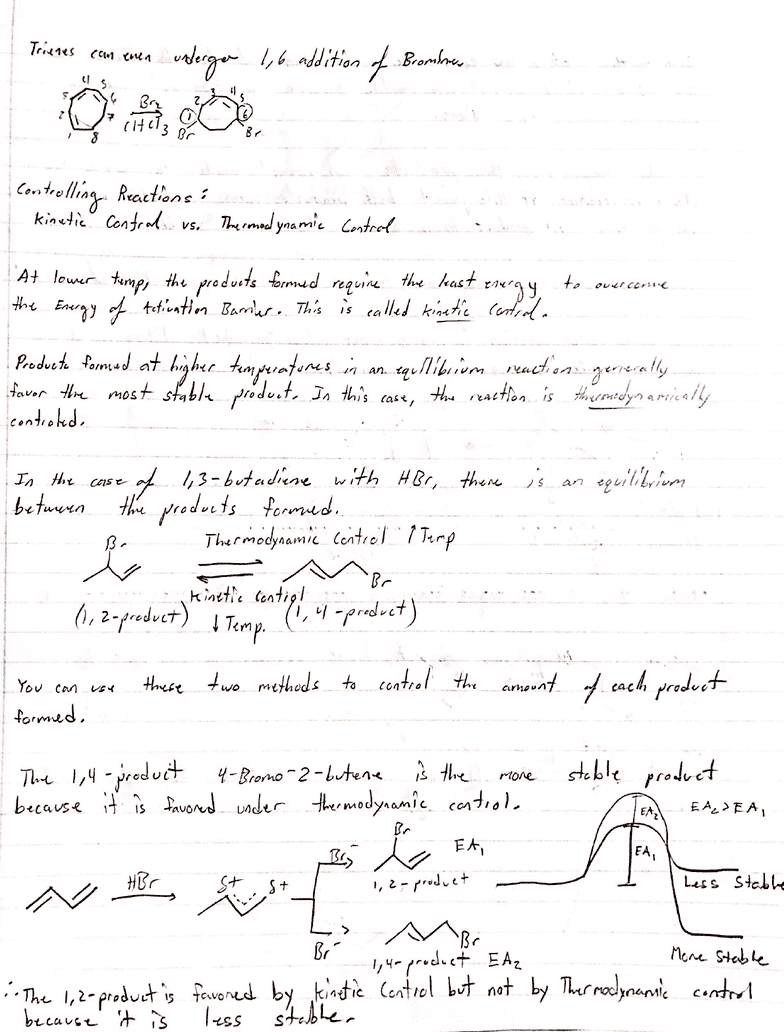 Trienes can even undergo 1,6 addition of Bromine
4 5
3 6
2 7
1 8
Br₂
CHCl₃
3 4
2 5
1 6
Br Br
Controlling Reactions:
Kinetic Control vs. Thermodynamic Control
At lower temp, the products formed require the least energy to overcome
the Energy of Activation Barrier. This is called kinetic Control.
Products formed at higher temperatures in an equilibrium reaction generally
favor the most stable product. In this case, the reaction is thermodynamically
controled.
In the case of 1,3-butadiene with HBr, there is an equilibrium
between the products formed.
Br Thermodynamic Control ↑Temp
Br
Kinetic Control
(1,2-product) ↓Temp. (1,4-product)
You can use these two methods to control the amount of each product
formed.
The 1,4-product 4-Bromo-2-butene is the more stable product
because it is favored under thermodynamic control.
EA₂ EA₂>EA₁
Br
Br⁻ EA₁ EA₁
HBr δ+ δ+ 1,2-product Less Stable
Br⁻ Br
1,4-product EA₂ More Stable
∴ The 1,2-product is favored by kinetic Control but not by Thermodynamic control
because it is less stable.